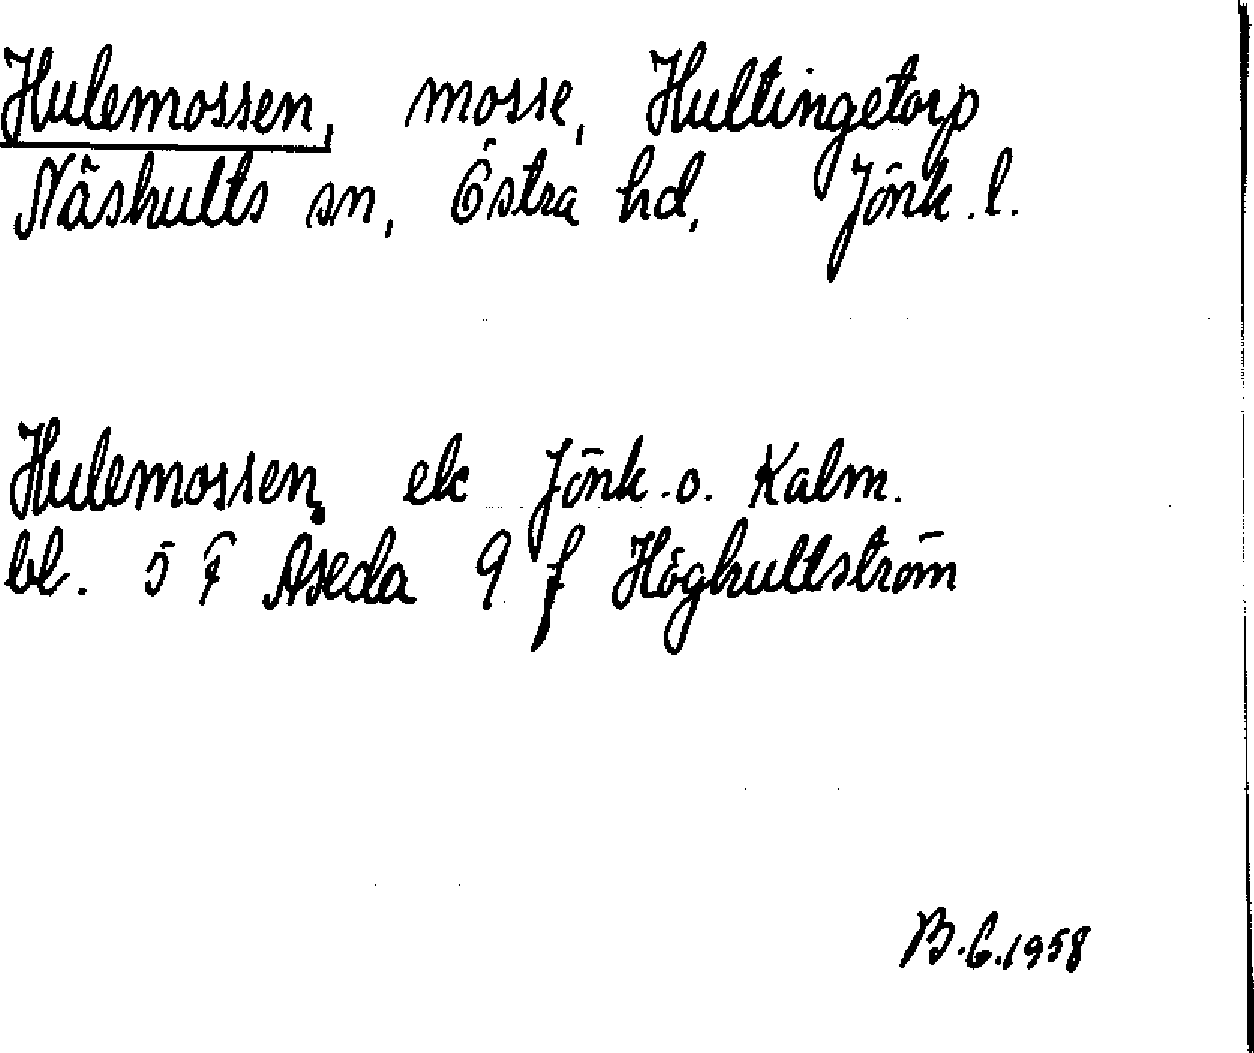 Hulemossen, mosse, Hultingetorp
Näshults sn, Östra hd, Jönk. l.
Hulemossen, ek Jönk. o. Kalm.
bl. 5 F Åseda 9 f Höghultström
B.G.1958